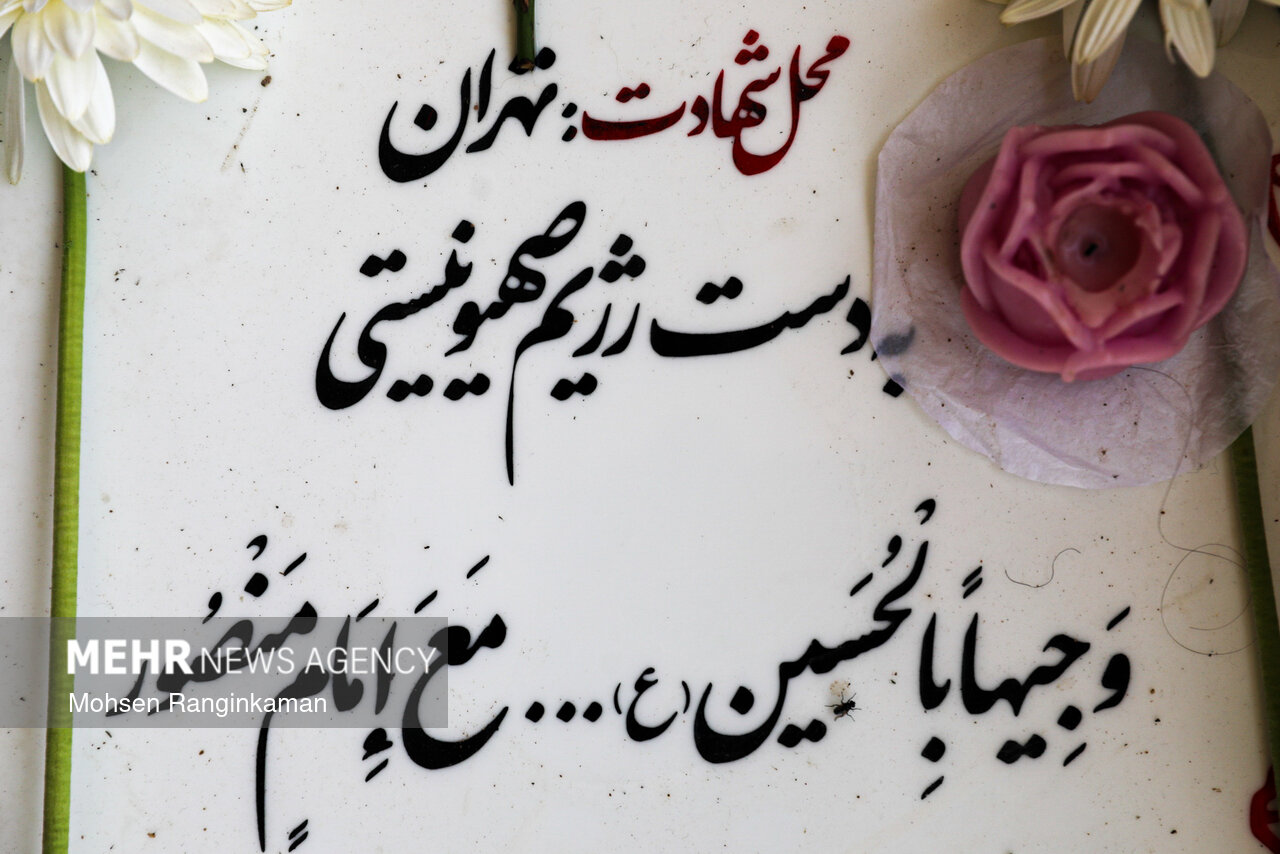 محل شهادت: تهران
بدست رژیم صهیونیستی
وَجِیهاً بِالْحُسَین (ع) ... مَعَ إِمَامٍ مَنْصُور
MEHR NEWS AGENCY
Mohsen Ranginkaman